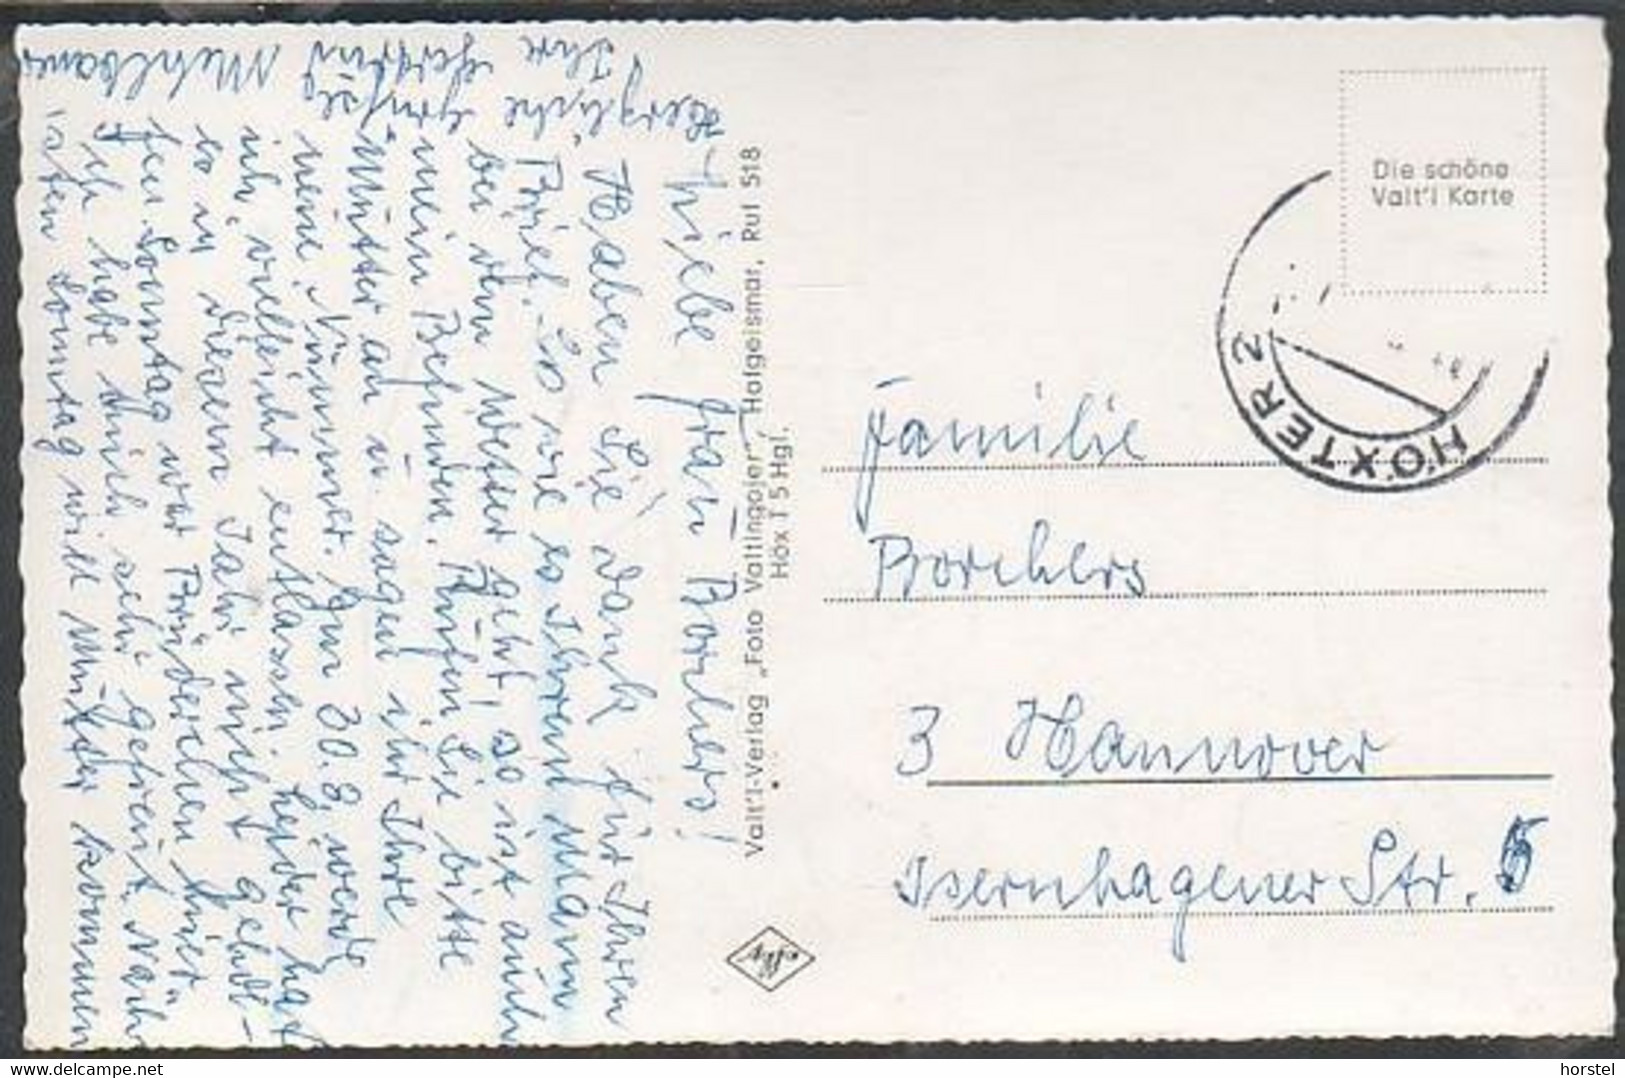 Liebe Frau Borchers!
Haben Sie Dank für Ihren
Brief. So wie es Ihrem Mann
bei dem Wetter geht, so ist auch
mein Befinden. Rufen Sie bitte
Mutter an u. sagen ihr Ihre
neue Nummer. Zum 30.8. werde
ich vielleicht entlassen. Leider hat
es in diesem Jahr nicht geholfen.
Sonntag war Brüderchen hier.
Ich habe mich sehr gefreut. Nächsten
Sonntag will Mutter kommen
Herzliche Grüße
Ihre
Mehlbauer
Valt'l-Verlag „Foto Valtingojer“, Hofgeismar, Ruf 518
Höx I 5 Hgl.
Agfa
Die schöne
Valt'l Karte
HÖXTER 2
Familie
Borchers
3 Hannover
Isernhagener Str.